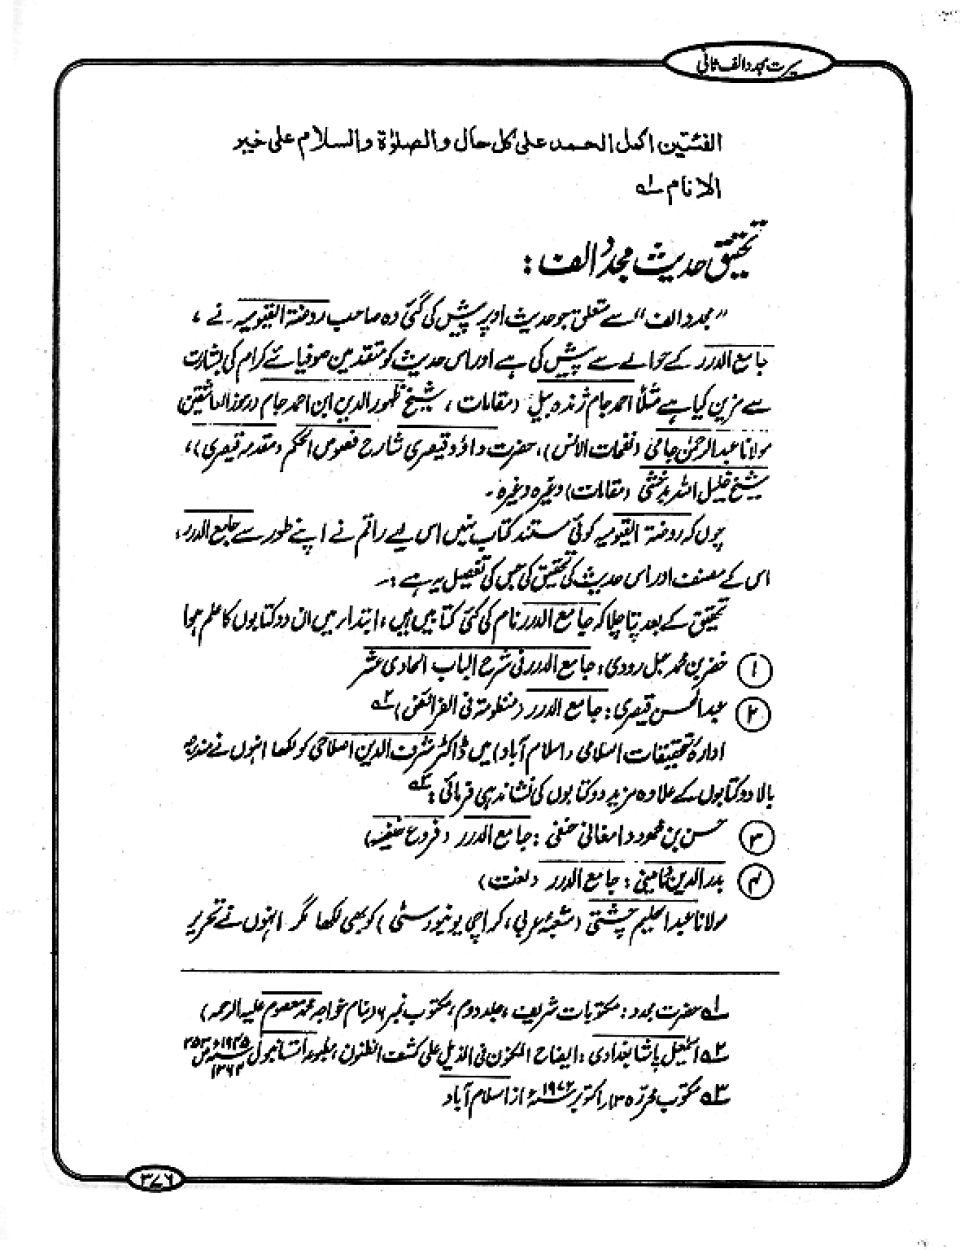 سیرت مجدد الف ثانی
الفئتین اکمل الحمد علی کل حال والصلوٰة والسلام علی خیر
الانام لے
تحقیق حدیث مجدد الف :
"مجدد الف" سے متعلق جو حدیث اوپر پیش کی گئی وہ صاحب روضۃ القیومیہ نے ،
جامع الدرر کے حوالے سے پیش کی ہے اور اس حدیث کو متقدمین صوفیائے کرام کی بشارت
سے مزین کیا ہے مثلاً احمد جام ژندہ پیل (مقامات ، شیخ ظہور الدین ابن احمد جام (رموز العاشقین
مولانا عبدالرحمٰن جامی (نفحات الانس)، حضرت داؤد قیصری شارح فصوص الحکم (مقدمہ قیصری)،
شیخ خلیل اللہ بدخشی (مقامات) وغیرہ وغیرہ ۔
چوں کہ روضۃ القیومیہ کوئی مستند کتاب نہیں اس لیے راقم نے اپنے طور سے جامع الدرر،
اس کے مصنف اور اس حدیث کی تحقیق کی جس کی تفصیل یہ ہے :۔
تحقیق کے بعد پتا چلا کہ جامع الدرر نام کی کئی کتابیں ہیں، ابتدار میں ان دو کتابوں کا علم ہوا
۱ خضر بن محمد جبل رودی : جامع الدرر فی شرح الباب الحادی عشر
۲ عبدالمحسن قیصری : جامع الدرر (منظومۃ فی الفرائض) ۲ے
ادارۂ تحقیقات اسلامی (اسلام آباد) میں ڈاکٹر شرف الدین اصلاحی کو لکھا انہوں نے مندرجہ
بالا دو کتابوں کے علاوہ مزید دو کتابوں کی نشاندہی فرمائی : ۳ے
۳ حسن بن محمود دامغانی حنفی : جامع الدرر (فروع حنفیہ)
۴ بدر الدین : جامع الدرر (لغت)
مولانا عبدالحلیم چشتی (شعبۂ عربی، کراچی یونیورسٹی) کو بھی لکھا مگر انہوں نے تحریر
۱ے حضرت مجدد : مکتوبات شریف ، جلد دوم ، مکتوب نمبر ۶ (بنام خواجہ محمد معصوم علیہ الرحمہ)
۲ے اسمٰعیل پاشا بغدادی : ایضاح المکنون فی الذیل علی کشف الظنون ، مطبوعہ استانبول ۱۹۴۵ء ۱۳۶۴ ص ۳۵۳
۳ے مکتوب محررہ ۱۳ر اکتوبر ۱۹۷۲ء از اسلام آباد
۳۷۶